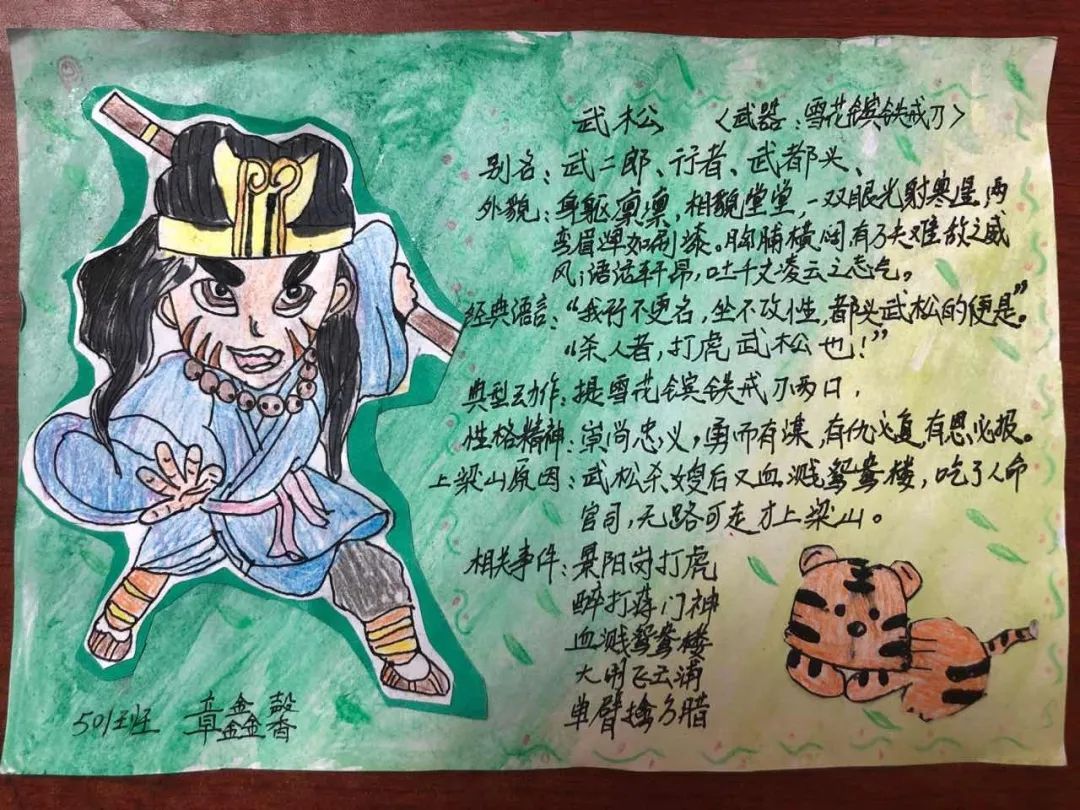 武松 〈武器:雪花镔铁戒刀〉
别名:武二郎、行者、武都头、
外貌:身躯凛凛,相貌堂堂,一双眼光射寒星,两
弯眉浑如刷漆。胸脯横阔,有万夫难敌之威
风;语话轩昂,吐千丈凌云之志气。
经典语言:“我行不更名,坐不改性,都头武松的便是。”
“杀人者,打虎武松也!”
典型动作:提雪花镔铁戒刀两口,
性格精神:崇尚忠义,勇而有谋,有仇必复,有恩必报。
上梁山原因:武松杀嫂后又血溅鸳鸯楼,吃了人命
官司,无路可走才上梁山。
相关事件:景阳岗打虎
醉打蒋门神
血溅鸳鸯楼
大闹飞云浦
单臂擒方腊
501班 章鑫馨